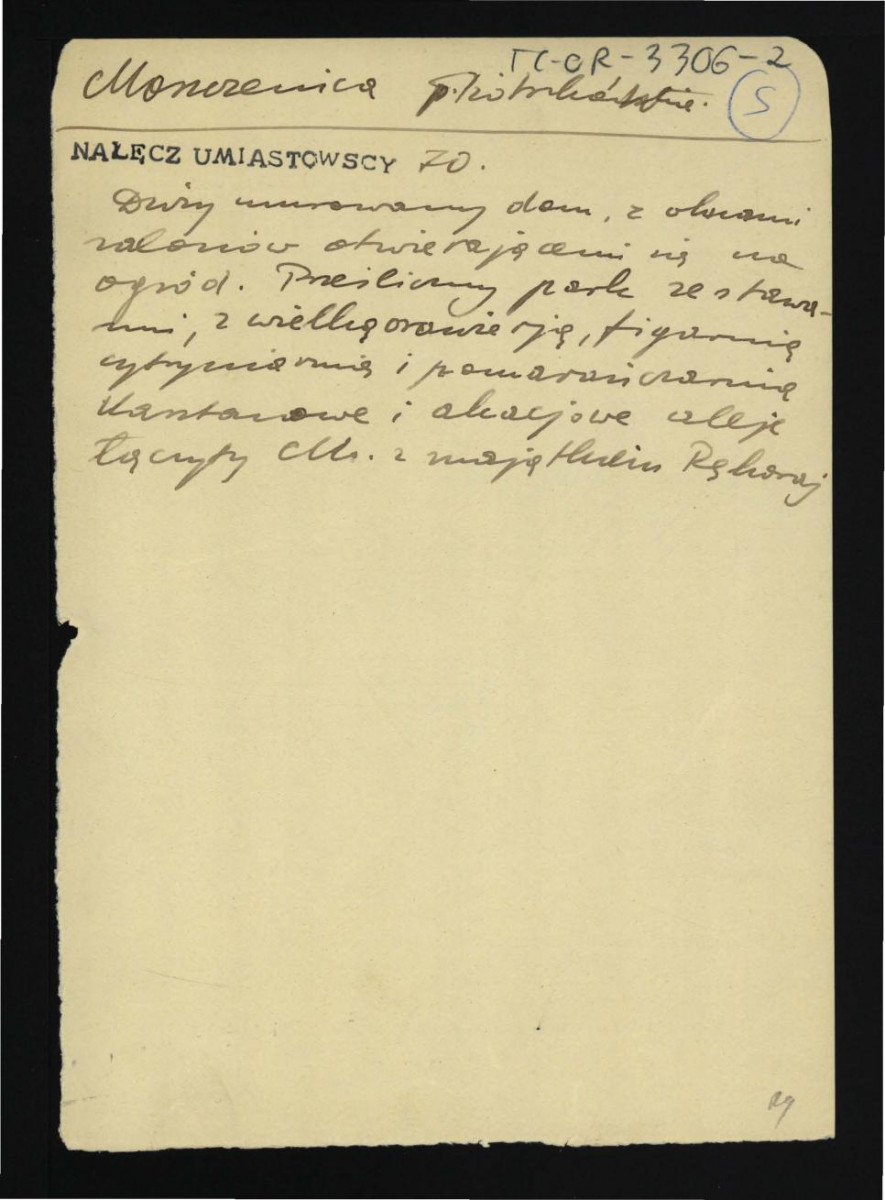 TC-OR-3306-2
Moszczenica p. Piotrków
S
NAŁĘCZ UMIASTOWSCY 70.
Duży murowany dom, z oknami
salonów otwierającemi się na
ogród. Prześliczny park ze stawa-
mi, z wielką oranżerją, figarnią
cytryniarnią i pomarańczarnią
Kasztanowe i akacjowe aleje
łączyły M. z majątkiem Rękoraj